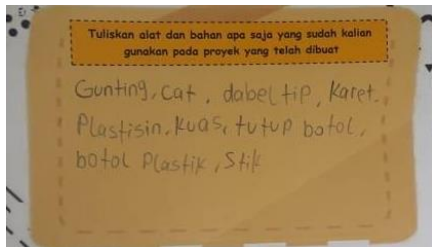 Tuliskan alat dan bahan apa saja yang sudah kalian
gunakan pada proyek yang telah dibuat
Gunting, cat, dabel tip, karet.
Plastisin, kuas, tutup botol,
botol Plastik, Stik